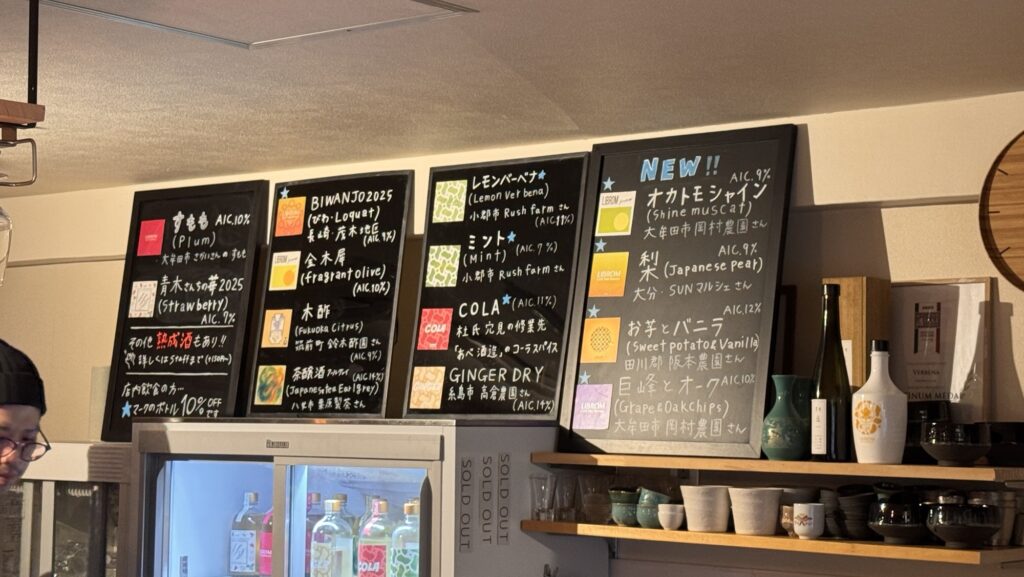 すもも ALC.10%
(Plum)
大牟田市 さかいさんの すもも
青木さんちの華2025
(Strawberry)
ALC. 7%
その他 熟成酒もあり!!
詳しくはStaffまで
店内飲食の方…
★マークのボトル 10%OFF
BIWANJO2025
(びわ・Loquat)
長崎 茂木地区
(ALC.9%)
金木犀
(fragrant olive)
(ALC.10%)
木酢
(Fukuoka Citrus)
筑前町 鈴木酢園さん
(ALC.9%)
茶醸酒
(ALC.14%)
(Japanesetea Earlgrey)
八女市 栗原製茶さん
レモンバーベナ★
(Lemon Verbena)
小郡市 Rush farm さん
(ALC.11%)
ミント★
(Mint) (ALC.7%)
小郡市 Rush farm さん
COLA★ (ALC.11%)
杜氏 穴見の修業先
「あべ酒造」のコーラスパイス
GINGER DRY
糸島市 高倉農園さん
(ALC.14%)
NEW!!
ALC.9%
オカトモシャイン
(Shine muscat)
大牟田市 岡村農園さん
ALC.9%
梨 (Japanese pear)
大分・SUNマルシェさん
ALC.12%
お芋とバニラ
(Sweet potato & Vanilla)
田川郡 阪本農園さん
巨峰とオーク ALC.10%
(Grape & Oak chips)
大牟田市 岡村農園さん
LIBROM
LIBROM
LIBROM
LIBROM
COLA
SOLD OUT
SOLD OUT
SOLD OUT
COLA
VERBENA
PLATINUM MEDAL